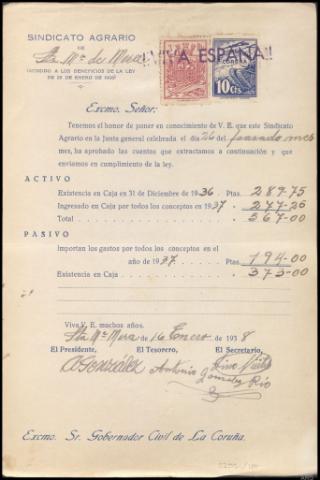 SINDICATO AGRARIO
DE
Sta Mª de Mera
ACOGIDO A LOS BENEFICIOS DE LA LEY
DE 28 DE ENERO DE 1906
¡¡VIVA ESPAÑA!!
10 Cts.
Excmo. Señor:
Tenemos el honor de poner en conocimiento de V. E. que este Sindicato
Agrario en la junta general celebrada el día 26 del pasado mes
mes, ha aprobado las cuentas que extractamos a continuación y que
enviamos en cumplimiento de la ley.
ACTIVO
Existencia en Caja en 31 de Diciembre de 1936. Ptas. 289-75
Ingresado en Caja por todos los conceptos en 1937 " 277-25
Total " 567-00
PASIVO
Importan los gastos por todos los conceptos en el
año de 1937 Ptas. 194-00
Existencia en Caja " 373-00
Viva V. E. muchos años.
Sta Mª Mera de 16 Enero de 1938
El Presidente, El Tesorero, El Secretario,
A González Antonio
González Rio
Excmo. Sr. Gobernador Civil de La Coruña.